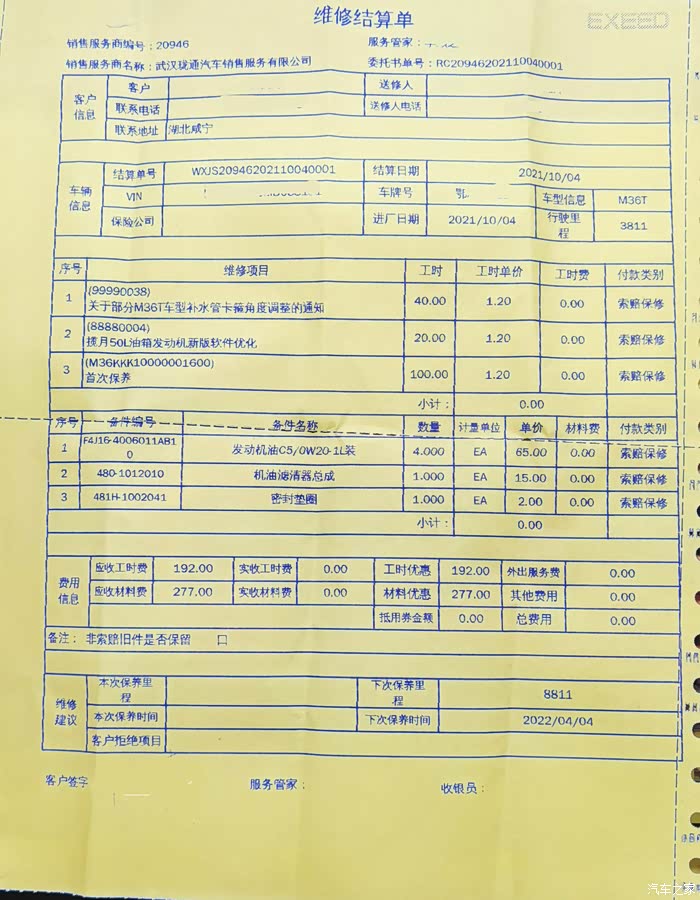 维修结算单
EXEED
销售服务商编号：20946
服务管家：
销售服务商名称：武汉珑通汽车销售服务有限公司
委托书单号：RC20946202110040001
客户信息
客户
送修人
联系电话
送修人电话
联系地址 湖北咸宁
车辆信息
结算单号 WXJS20946202110040001 结算日期 2021/10/04
VIN 车牌号 鄂 车型信息 M36T
保险公司 进厂日期 2021/10/04 行驶里程 3811
序号 维修项目 工时 工时单价 工时费 付款类别
1 (99990038) 关于部分M36T车型补水管卡箍角度调整的通知 40.00 1.20 0.00 索赔保修
2 (88880004) 揽月50L油箱发动机新版软件优化 20.00 1.20 0.00 索赔保修
3 (M36KKK10000001600) 首次保养 100.00 1.20 0.00 索赔保修
小计： 0.00
序号 备件编号 备件名称 数量 计量单位 单价 材料费 付款类别
1 F4J16-4006011AB10 发动机油C5/0W20-1L装 4.000 EA 65.00 0.00 索赔保修
2 480-1012010 机油滤清器总成 1.000 EA 15.00 0.00 索赔保修
3 481H-1002041 密封垫圈 1.000 EA 2.00 0.00 索赔保修
小计： 0.00
费用信息
应收工时费 192.00 实收工时费 0.00 工时优惠 192.00 外出服务费 0.00
应收材料费 277.00 实收材料费 0.00 材料优惠 277.00 其他费用 0.00
抵用券金额 0.00 总费用 0.00
备注： 非索赔旧件是否保留 口
维修建议
本次保养里程 下次保养里程 8811
本次保养时间 下次保养时间 2022/04/04
客户拒绝项目
客户签字 服务管家： 收银员：
汽车之家